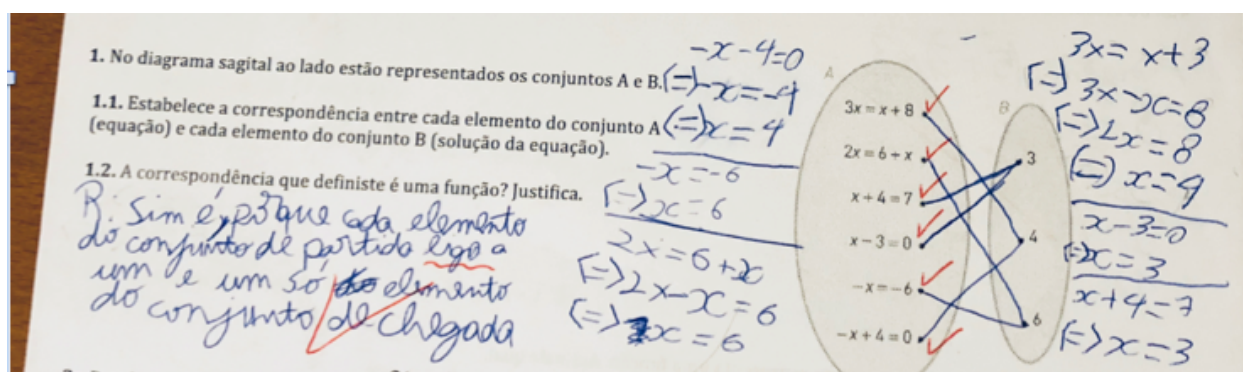 1. No diagrama sagital ao lado estão representados os conjuntos A e B.
1.1. Estabelece a correspondência entre cada elemento do conjunto A
(equação) e cada elemento do conjunto B (solução da equação).
1.2. A correspondência que definiste é uma função? Justifica.
R: Sim é, porque cada elemento
do conjunto de partida ligo a
um e um só elemento
do conjunto de chegada
-x-4=0
(=)-x=-4
(=)x=4
-x=-6
(=)x=6
2x=6+x
(=)2x-x=6
(=)x=6
A
3x = x + 8
2x = 6 + x
x + 4 = 7
x − 3 = 0
−x = −6
−x + 4 = 0
B
3
4
6
3x = x+3
(=) 3x-x=8
(=)2x=8
(=) x=4
x-3=0
(=)x=3
x+4=7
(=)x=3